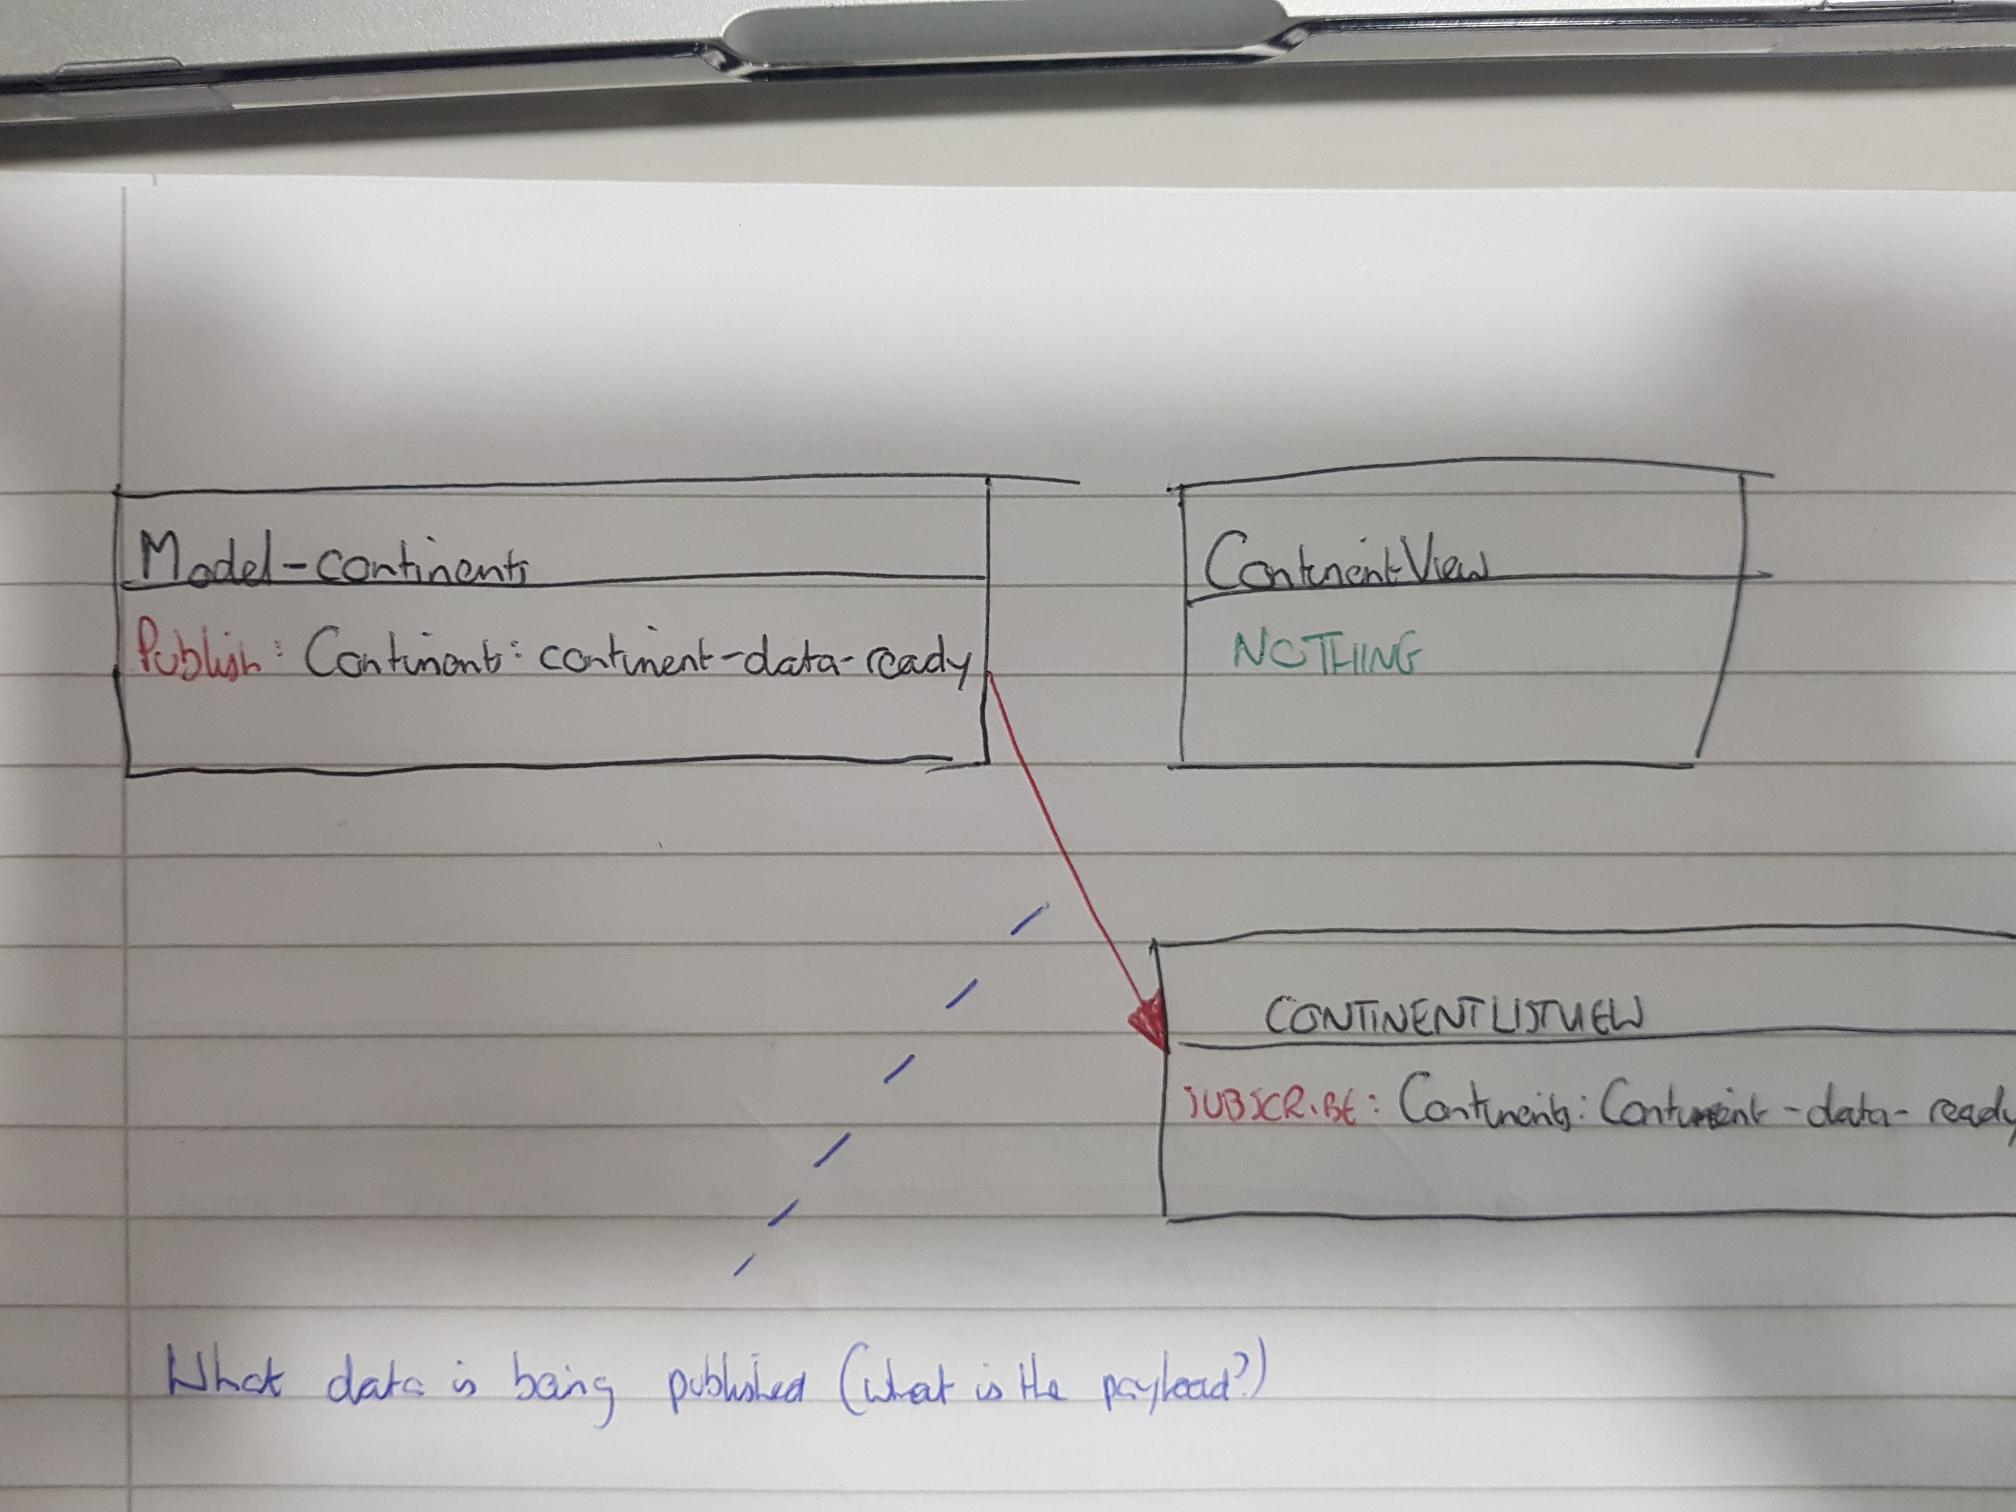 Model-continents
Publish: Continents: continent-data-ready
ContinentView
NOTHING
CONTINENTLISTVIEW
SUBSCRIBE: Continents: Continent-data-ready
What data is being published (what is the payload?)